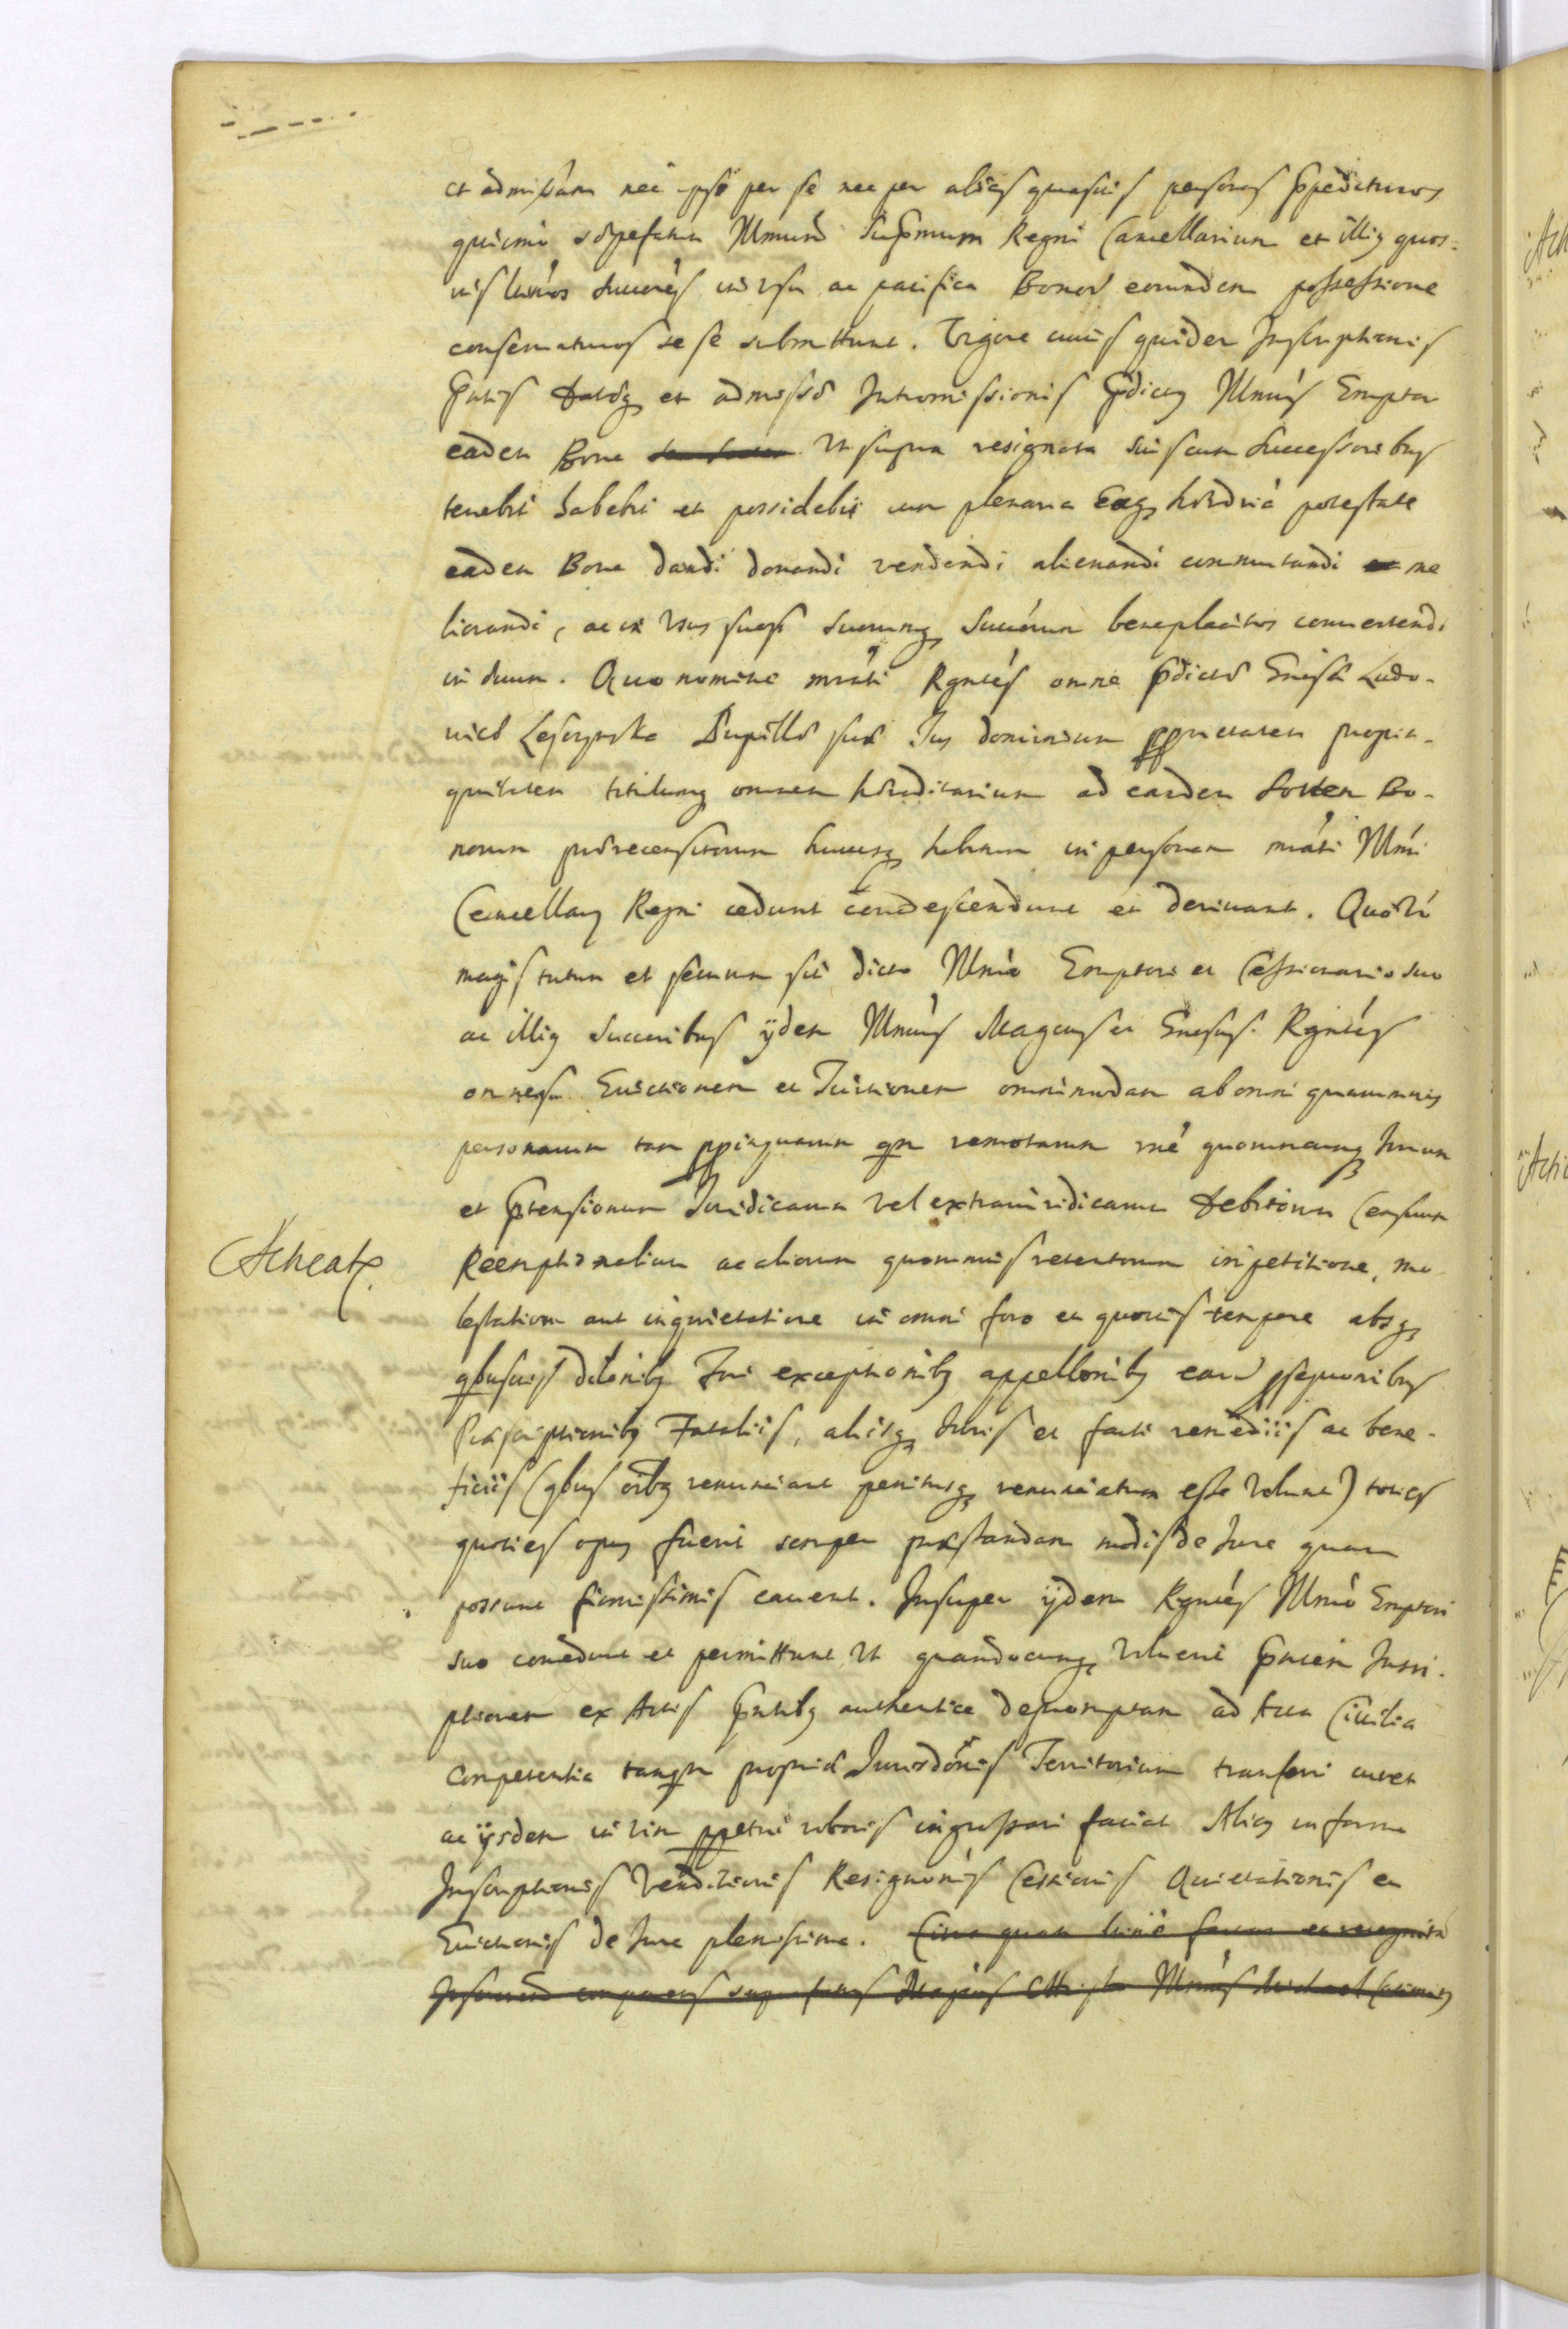 et admissam nec ipse per se nec per alias quasuis personas ppedituros
quinimo saepefatum Illmum Supmum Regni Cancellarium et illig quos-
uis Succres in vsu ac pacifica Bonor eorundem possessione
conseruaturos se se submittunt. Vigore cuius quidem Inscriptionis
pntis datæq et admissæ Intromissionis pdicty Illmus Emptor
eadem Bona Vt supra resignata suis cum Successoribus
tenebit habebit et possidebit cum plenaria Eaq hæredria potestate
eadem Bona dandi donandi vendendi alienandi commutandi me
liorandi, ac in Vsus suos suorumq Succorum beneplacitos conuertendi
in duum. Quo nomine mrati Rgntes omne pdictæ Gnosæ Ludo-
uicæ Lesczynska Pupillæ suæ Jus dominium pprietatem propin-
quitatem titulumq omnem hæreditarium ad eandem Sortem Bo-
norum prærecensitorum hucusq habitum in personam mrati Illmi
Cancellary Regni cedunt condescendunt et deriuant. Quo Vt
magis tutum et securum sit dicto Illmo Emptori et Cessionario suo
ac illig Succoribus ijdem Illmus Magcus et Gnosus Rgntes
omnes Euictionem et Tuitionem omnimodam ab omni quarumuis
personarum tam ppinquarum qm remotarum rne quorumcunq Jurium
et Prtensionum Juridicarum Vel extrajuridicarum debitorum Censuum
Reemptionalium ac aliorum quorumuis retentorum impetitione, mo-
Acheatz
lestatione aut inquietatione in omni foro et quouis tempore absq
qbusuis dilonibq Juri exceptionibq appellonibq earu psequonibus
Præscriptionibq Fataliis, aliisq Juris et facti remediis ac bene-
ficiis (qbus oibq renunciant penitusq renunciatum esse Volunt) toties
quoties opus fuerit semper præstandam modis de Jure quam
possunt firmissimis cauent. Insuper ijdem Rgntes Illmo Emptori
suo concedunt et permittunt Vt quandocunq Voluerit Pntem Inscri-
ptionem ex Actis Pntibq authentice depromptam ad Acta Ciuilia
Competentia tanqm propriæ Jurisdonis Territorium transferri curet
ac ijsdem in vim ppetui roboris ingrossari faciat Alias in forma
Inscriptionis Venditionis Resignonis Cessionis Quietationis et
Euictionis de Jure plenissima.